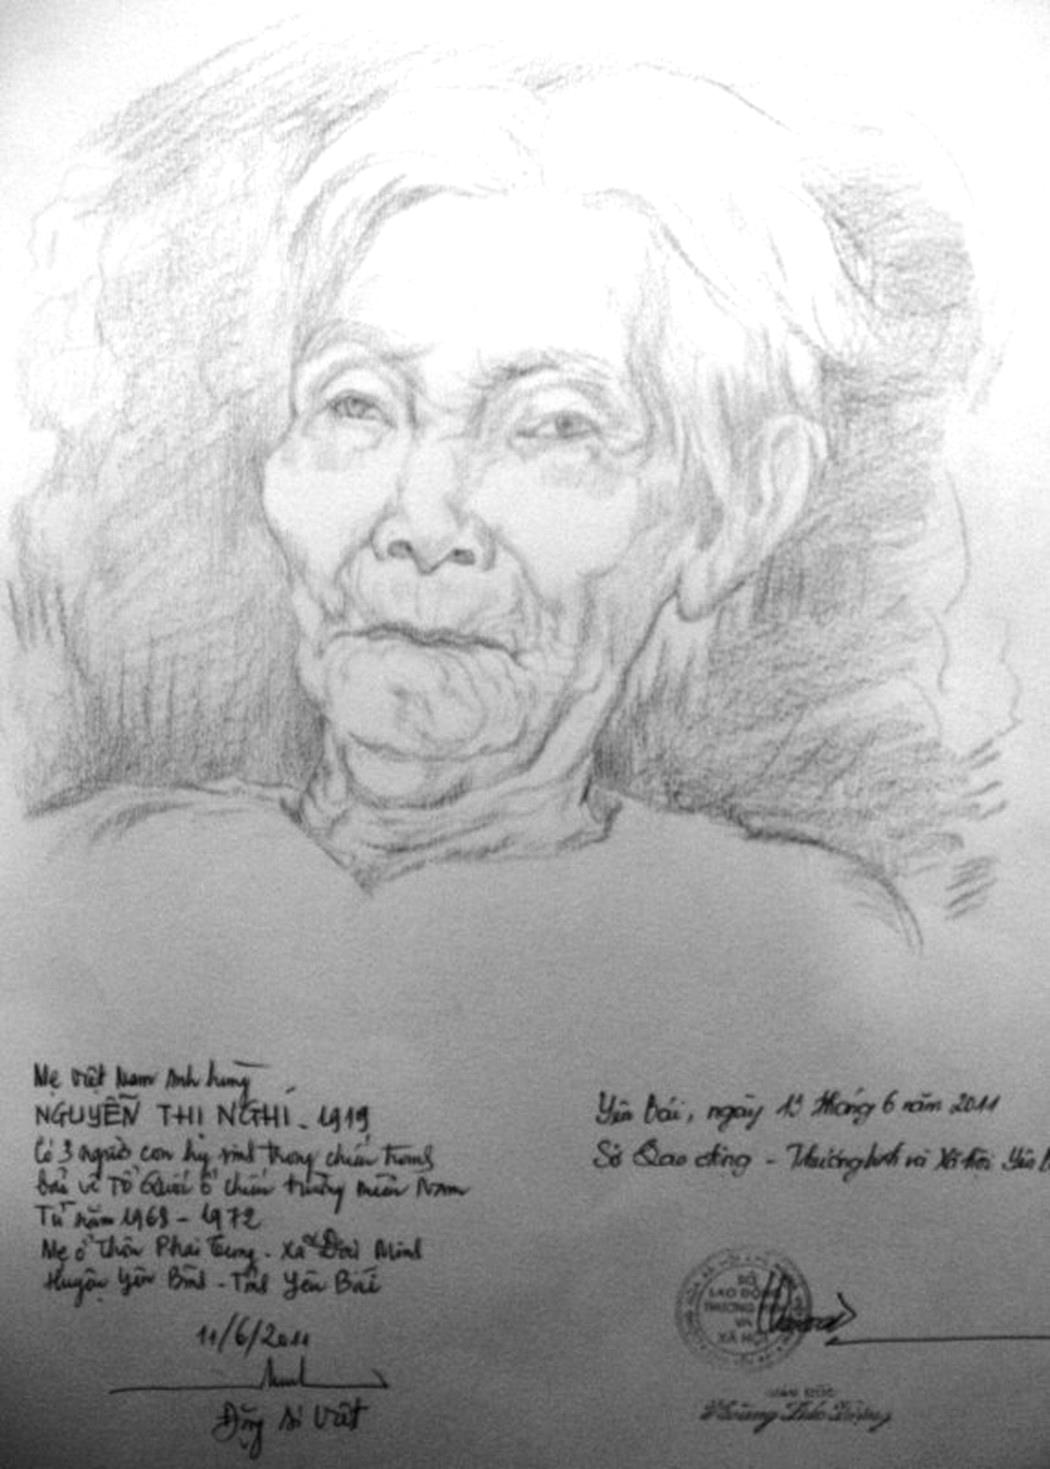 Mẹ Việt Nam Anh hùng
NGUYỄN THỊ NGHÍ - 1919
Có 3 người con hy sinh trong chiến tranh
bảo vệ Tổ Quốc ở chiến trường miền Nam
Từ năm 1968 - 1972
Mẹ ở Thôn Phai Tung - Xã Đại Minh
Huyện Yên Bình - Tỉnh Yên Bái
11/6/2011
Đặng Ái Việt
Yên Bái, ngày 13 tháng 6 năm 2011
Sở Lao động - Thương binh và Xã hội Yên
SỞ
LAO ĐỘNG
THƯƠNG
VÀ
XÃ HỘI
GIÁM ĐỐC